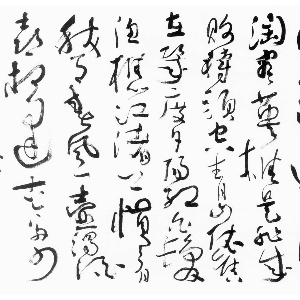 淘盡英雄是非成
敗轉頭空青山依舊
在幾度夕陽紅白髮
漁樵江渚上慣看
秋月春風一壺濁酒
喜相逢古今多少